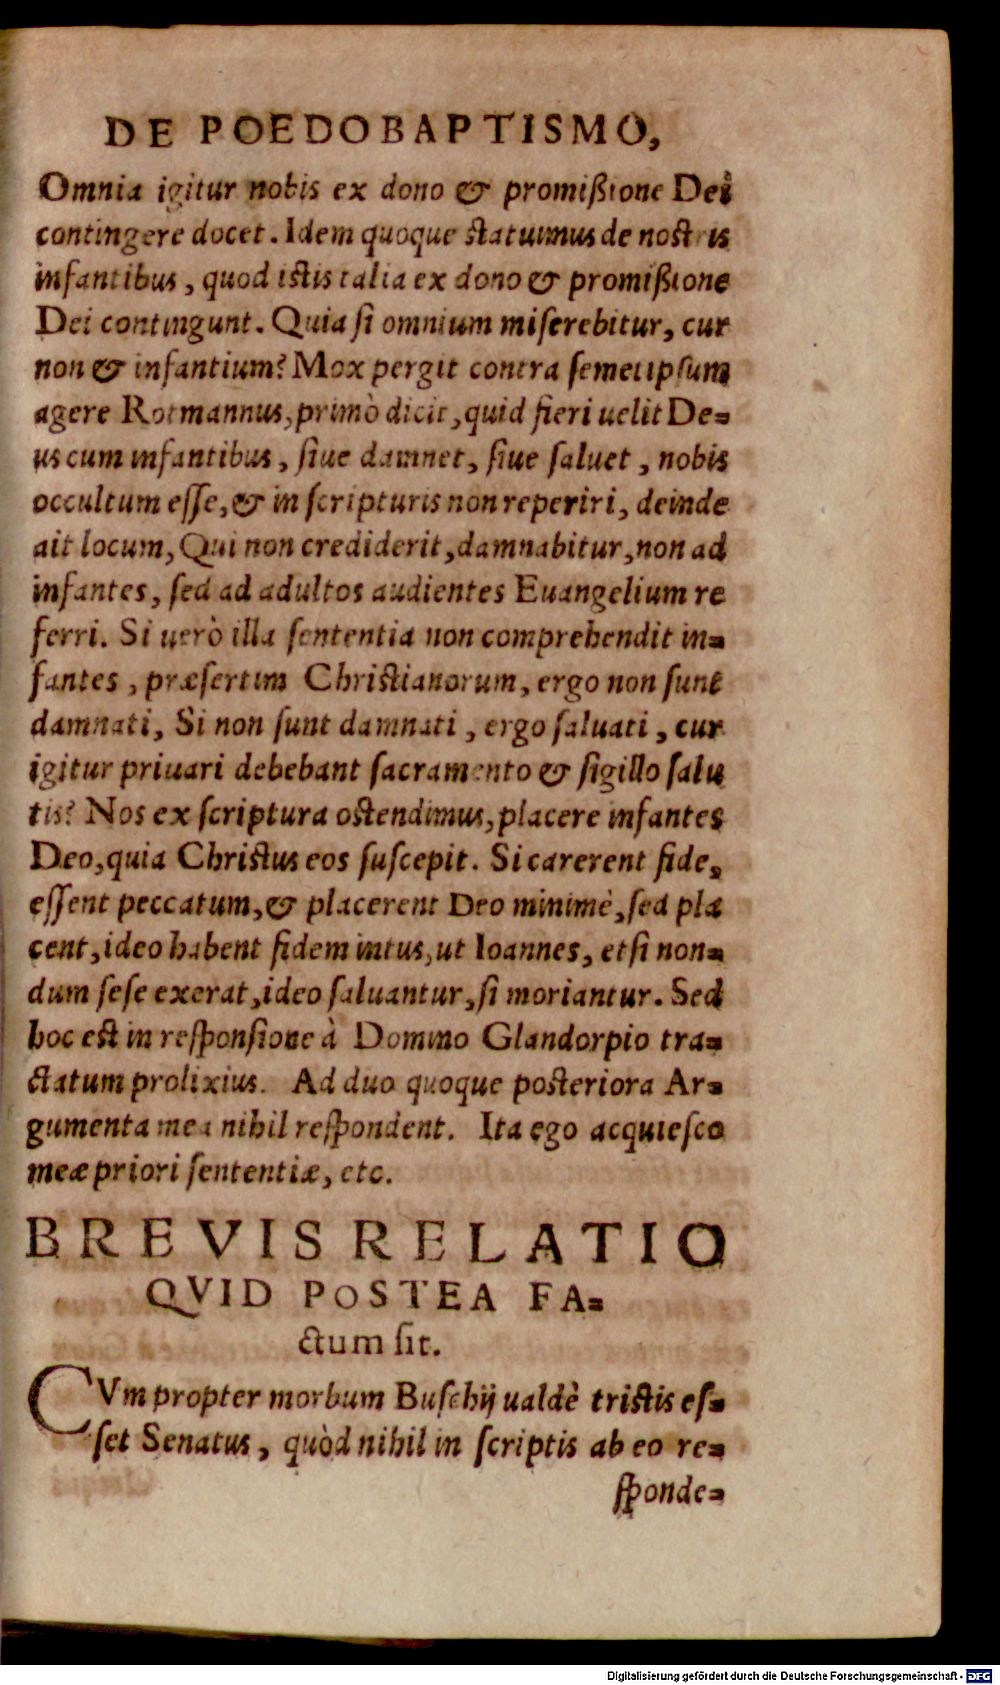 DE POEDOBAPTISMO,
Omnia igitur nobis ex dono & promißione Dei
contingere docet. Idem quoque statuimus de nostris
infantibus, quod istis talia ex dono & promißione
Dei contingunt. Quia ſi omnium miſerebitur, cur
non & infantium? Mox pergit contra ſemetipſum
agere Rotmannus, primò dicit, quid fieri uelit De⸗
us cum infantibus, ſiue damnet, ſiue ſaluet, nobis
occultum eſſe, & in ſcripturis non reperiri, deinde
ait locum, Qui non crediderit, damnabitur, non ad
infantes, ſed ad adultos audientes Euangelium re
ferri. Si uerò illa ſententia non comprehendit in⸗
fantes, præſertim Christianorum, ergo non ſunt
damnati, Si non ſunt damnati, ergo ſaluati, cur
igitur priuari debebant ſacramento & ſigillo ſalu
tis? Nos ex ſcriptura ostendimus, placere infantes
Deo, quia Christus eos ſuſcepit. Si carerent fide,
eſſent peccatum, & placerent Deo minimè, ſed pla
cent, ideo habent fidem intus, ut Ioannes, etſi non⸗
dum ſeſe exerat, ideo ſaluantur, ſi moriantur. Sed
hoc est in reſponſione à Domino Glandorpio tra⸗
ctatum prolixius. Ad duo quoque posteriora Ar⸗
gumenta mea nihil reſpondent. Ita ego acquieſco
meæ priori ſententiæ, etc.
BREVIS RELATIO
QVID POSTEA FA⸗
ctum ſit.
CVm propter morbum Buſchij ualdè tristis eſ⸗
ſet Senatus, quòd nihil in ſcriptis ab eo re⸗
ſponde⸗
Digitalisierung gefördert durch die Deutsche Forschungsgemeinschaft - DFG